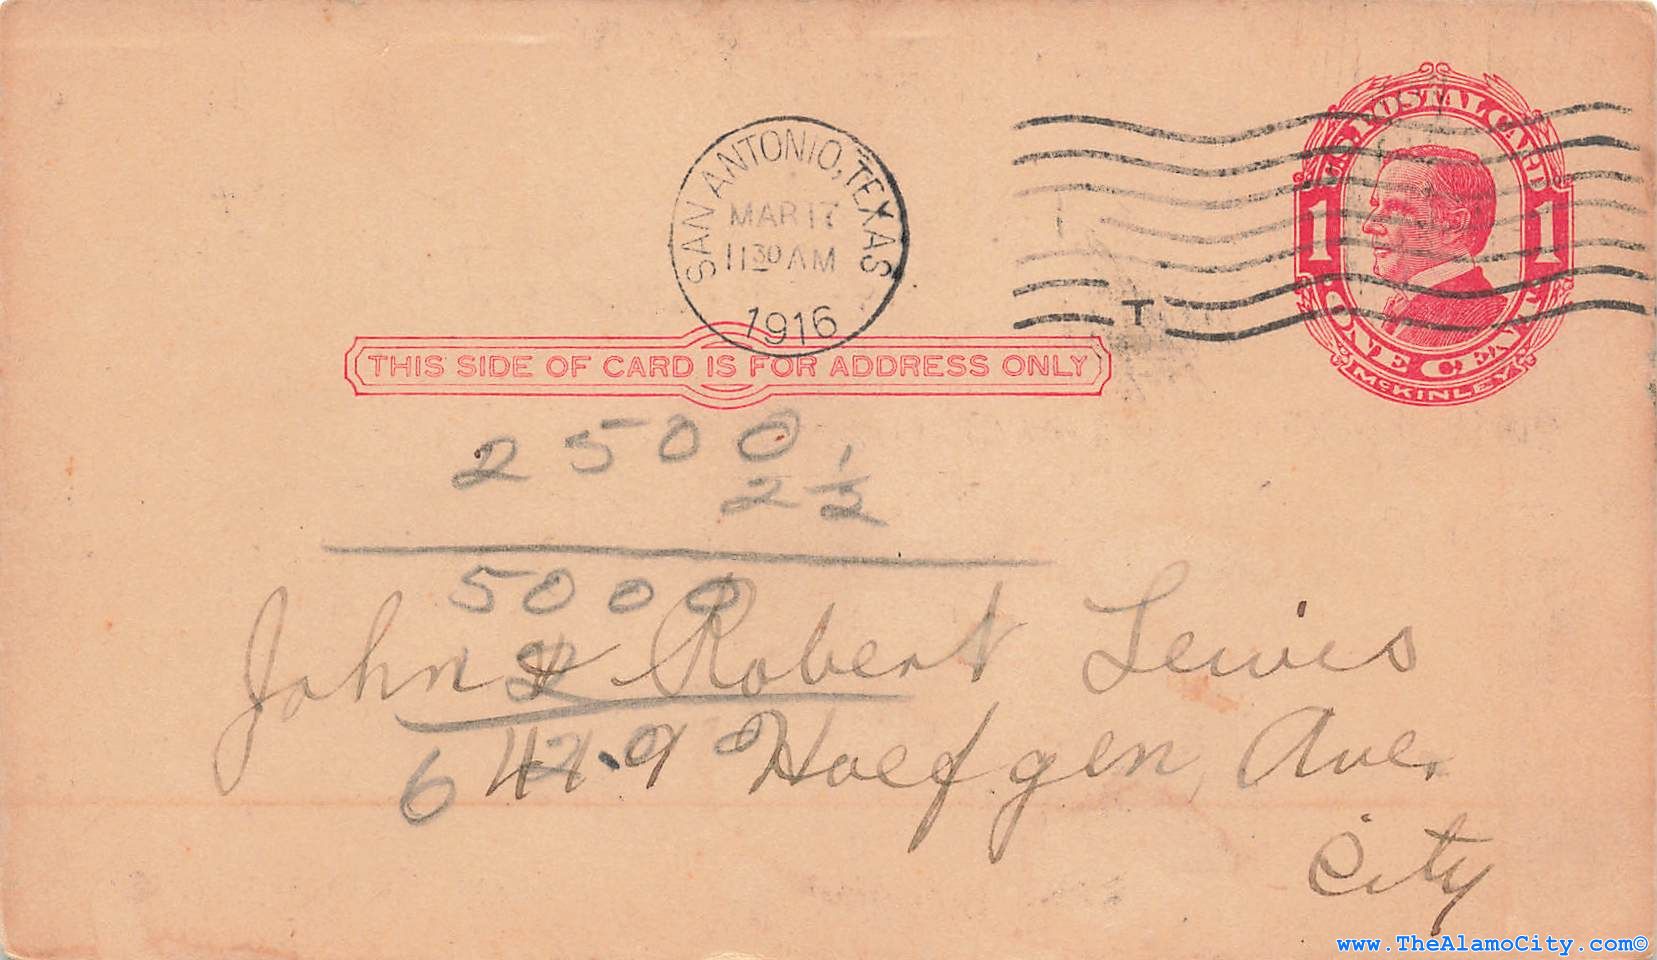 U.S. POSTAL CARD
1 1
ONE CENT
McKINLEY
SAN ANTONIO, TEXAS
MAR 17
11 30 AM
1916
T
THIS SIDE OF CARD IS FOR ADDRESS ONLY
2500
2 1/2
5000
John Robert Lewis
419 Hoefgen Ave.
City
www.TheAlamoCity.com©